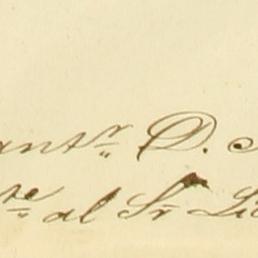 antr. D.
te al Sr Lic